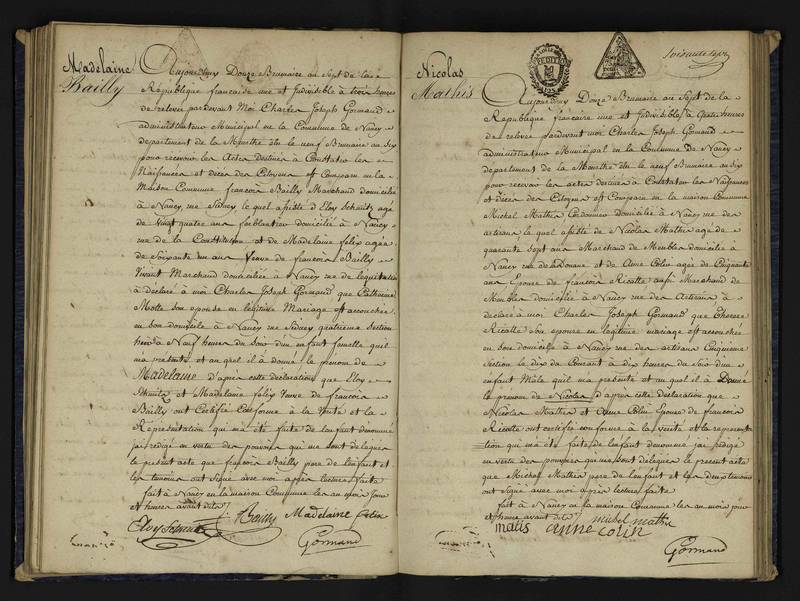 Madelaine
Bailly
Aujourd'huy Douze Brumaire au Sept de la
République francaise une et Indivisible à trois heures
de relevée pardevant Moi Charles Joseph Gormand
administrateur Municipal de la Commune de Nancy
departement de la Meurthe élu le neuf Brumaire an Six
pour recevoir les Actes destinés à Constater les
Naissances et décès des Citoyens est Comparu en la
Maison Commune françois Bailly Marchand domicilié
à Nancy rue Sidney, lequel assisté d'Eloy Schmitz agé
de Vingt quatre ans ferblantier domicilié à Nancy
rue de la Constitution et de Madelaine felix agée
de Soixante un ans Veuve de francois Bailly
Vivant Marchand domiciliée à Nancy rue de l'equitation
à déclaré à moi Charles Joseph Gormand que Catherine
Motte son epouse en légitime Mariage est accouchée
en son domicile à Nancy rue Sidney quatrieme Section
hier à Neuf heures du Soir d'un enfant femelle qu'il
ma présenté et auquel il à donné le prenom de
Madelaine d'après cette déclaration que Eloy
Schmitz et Madelaine felix Veuve de francois
Bailly ont Certifié Conforme à la Vérité et la
Représentation qui ma été faite de lenfant denommé
jai rédigé en vertu des pouvoirs qui me sont délégués
le présent acte que françois Bailly pere de lenfant et
les temoins ont signé avec moi après lecture faite
fait à Nancy en la maison Commune les an mois Jour
et heures avant dits
Eloy Schmitz f Bailly Madelaine felix
Gormand
Nicolas
Mathis
Aujourd'huy Douze Brumaire au Sept de la
République francaise une et indivisible à quatre heures
de relevée pardevant moi Charles Joseph Gormand
administrateur Municipal en la Commune de Nancy
departement de la Meurthe élu le neuf Brumaire an Six
pour recevoir les actes destinés à Constater les Naissances
et décès des Citoyens est Comparu en la maison Commune
Michel Mathis Cordonnier domicilié à Nancy rue des
artisans, lequel assisté de Nicolas Mathis agé de
quarante sept ans Marchand de Meubles domicilié à
Nancy rue de la Douane et de Anne Colin agée de Cinquante
ans Epouse de francois Ricatte aussi Marchand de
Meubles domiciliée à Nancy rue des Artisans à
déclaré à moi Charles Joseph Gormand que Therese
Ricatte son epouse en légitime mariage est accouchée
en son domicile à Nancy rue des artisans Cinquieme
Section le dix du Courant à dix heures du Soir d'un
enfant Male quil ma présenté et au quel il à Donné
le prenom de Nicolas d'apres cette déclaration que
Nicolas Mathis et Anne Colin Epouse de francois
Ricatte ont certifié conforme à la vérité et la représenta
tion qui ma été faite de lenfant denommé jai rédigé
en vertu des pouvoirs qui me sont délégués le présent acte
que Michel Mathis pere de lenfant et les deux temoins
ont signé avec moi après lecture faite
fait à Nancy en la maison Commune les an mois jour
et heures avant dits
matis anne colin michel mathis
Gormand